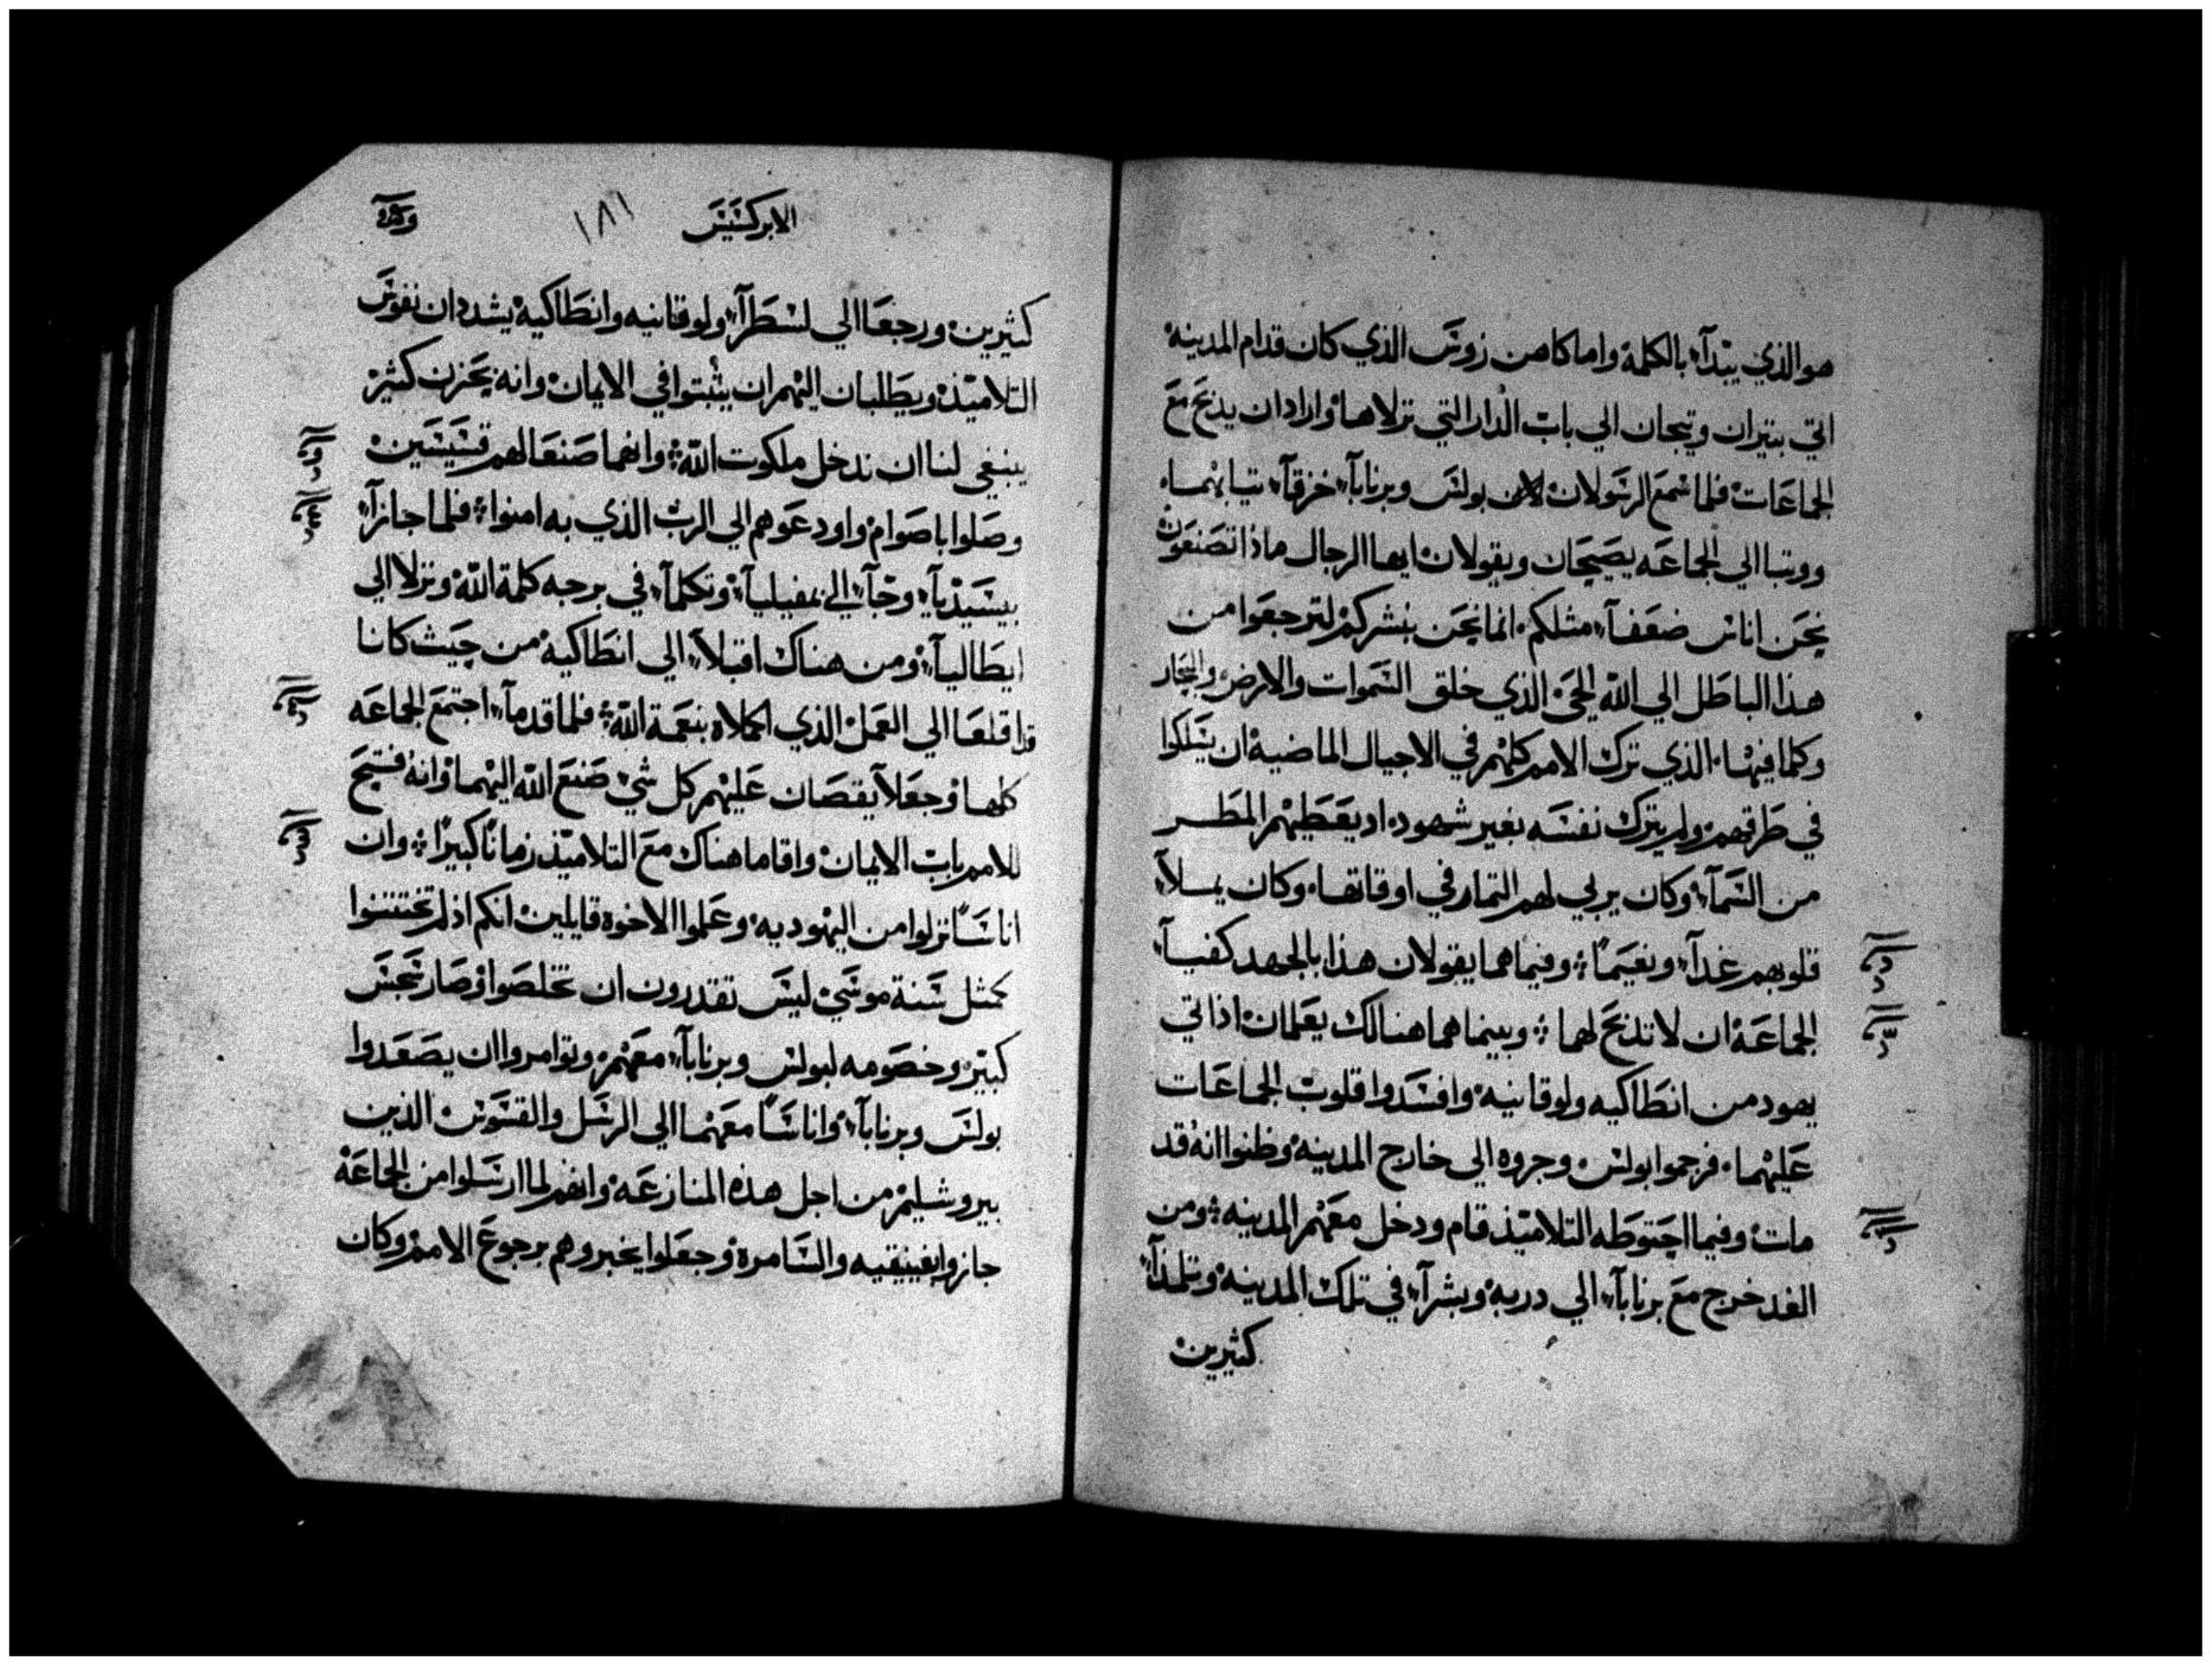 هو الذي يبدآء بالكلمة واما كاهن زوس الذي كان قدام المدينة
اتي بتيران وتيجان الي باب الدار التي نزلاها واراد ان يذبح مع
الجماعات فلما سمع الرسولان بولس وبرنابآء خزقآء تيابهما
ووتبا الي الجماعه يصيحان ويقولان ايها الرجال ماذا تصنعون
نحن اناس ضعفآء مثلكم انما نحن بنشركم لترجعوا من
هذا الباطل الي الله الحي الذي خلق السموات والارض والبحار
وكلما فيها الذي ترك الامم كلهم في الاجيال الماضية ان يسلكوا
في طرقهم ولم يترك نفسه بغير شهود اد يعطيهم المطر
من السمآء وكان يربي لهم التمار في اوقاتها وكان يملآء
قلوبهم غدآء ونعيمًا وفيما هما يقولان هذا بالجهد كفيآء
الجماعة ان لا تذبح لهما وبينما هما هنالك يعلمان اذ اتي
يهود من انطاكيه ولوقانيه وافسدوا قلوب الجماعات
عليهما فرجموا بولس وجروه الي خارج المدينه وظنوا انه قد
مات وفيما احتوطه التلاميذ قام ودخل معهم المدينه ومن
الغد خرج مع برنابآء الي دربه وبشرآء في تلك المدينه وتلمذآء
كثيرين
الابركسيس ١٨١
كثيرين ورجعا الي لسطرآء ولوقانيه وانطاكيه يشددان نفوس
التلاميذ ويطلبان اليهم ان يثبتوا في الايمان وانه بحزن كثير
ينبغي لنا ان ندخل ملكوت الله وانهما صنعا لهم قسيسين
وصلوا باصوام واودعوهم الي الرب الذي به امنوا فلما جازآء
بيسيذيآء وجآء الي بمفيليآء وتكلمآء في برجه كلمة الله ونزلا الي
ايطاليآء ومن هناك اقبلآء الي انطاكيه من حيث كانا
قد اقلعا الي العمل الذي اكملاه بنعمة الله فلما قدمآء اجتمع الجماعه
كلها وجعلا يقصان عليهم كل شي صنع الله اليهما وانه فتح
للامم باب الايمان واقاما هناك مع التلاميذ زمانًا كبيرًا وان
اناسًا نزلوا من اليهوديه وعلموا الاخوه قايلين انكم اذ لم تختتنوا
كمثل سنة موسي ليس تقدرون ان تخلصوا وصار سجس
كبير وخصومه لبولس وبرنابآء معهم وتوامروا ان يصعدوا
بولس وبرنابآء واناسًا معهما الي الرسل والقسوس الذين
بيروشليم من اجل هذه المنازعه وانهم لما ارسلوا من الجماعة
جازوا بفينيقيه والسامرة وجعلوا يخبروهم برجوع الامم وكان